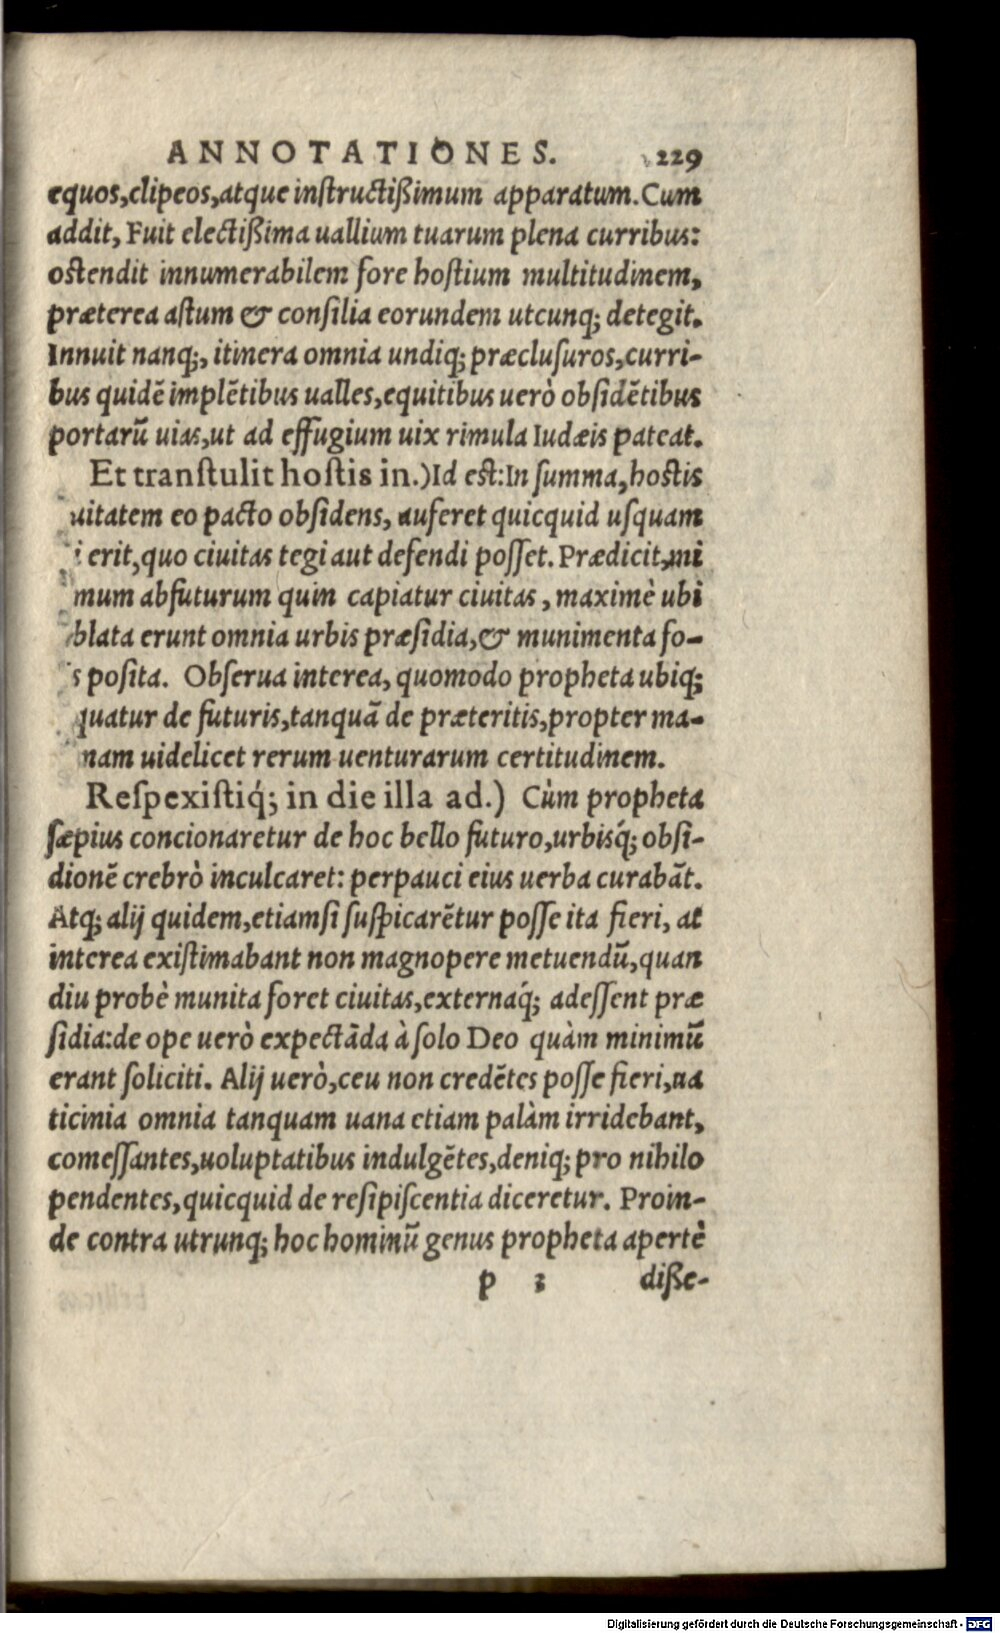 ANNOTATIONES. 229
equos,clipeos,atque inſtructißimum apparatum.Cum
addit, Fuit electißima uallium tuarum plena curribus:
oſtendit innumerabilem fore hoſtium multitudinem,
præterea aſtum & conſilia eorundem utcunq; detegit.
Innuit nanq;, itinera omnia undiq; præcluſuros,curri-
bus quidẽ implẽtibus ualles,equitibus uerò obſidẽtibus
portarũ uias,ut ad effugium uix rimula Iudæis pateat.
Et tranſtulit hoſtis in.)Id eſt:In ſumma,hoſtis
uitatem eo pacto obſidens, auferet quicquid uſquam
i erit,quo ciuitas tegi aut defendi poſſet. Prædicit,mi
mum abfuturum quin capiatur ciuitas, maximè ubi
blata erunt omnia urbis præſidia,& munimenta fo-
s poſita. Obſerua interea, quomodo propheta ubiq;
quatur de futuris,tanquã de præteritis,propter ma-
nam uidelicet rerum uenturarum certitudinem.
Reſpexiſtiq́; in die illa ad.) Cùm propheta
ſæpius concionaretur de hoc bello futuro,urbisq́; obſi-
dionẽ crebrò inculcaret: perpauci eius uerba curabãt.
Atq; alij quidem,etiamſi ſuſpicarẽtur poſſe ita fieri, at
interea exiſtimabant non magnopere metuendũ,quan
diu probè munita foret ciuitas,externaq́; adeſſent præ
ſidia:de ope uerò expectãda à ſolo Deo quàm minimũ
erant ſoliciti. Alij uerò,ceu non credẽtes poſſe fieri,ua
ticinia omnia tanquam uana etiam palàm irridebant,
comeſſantes,uoluptatibus indulgẽtes,deniq; pro nihilo
pendentes,quicquid de reſipiſcentia diceretur. Proin-
de contra utrunq; hoc hominũ genus propheta apertè
p 3 diße-
Digitalisierung gefördert durch die Deutsche Forschungsgemeinschaft - DFG